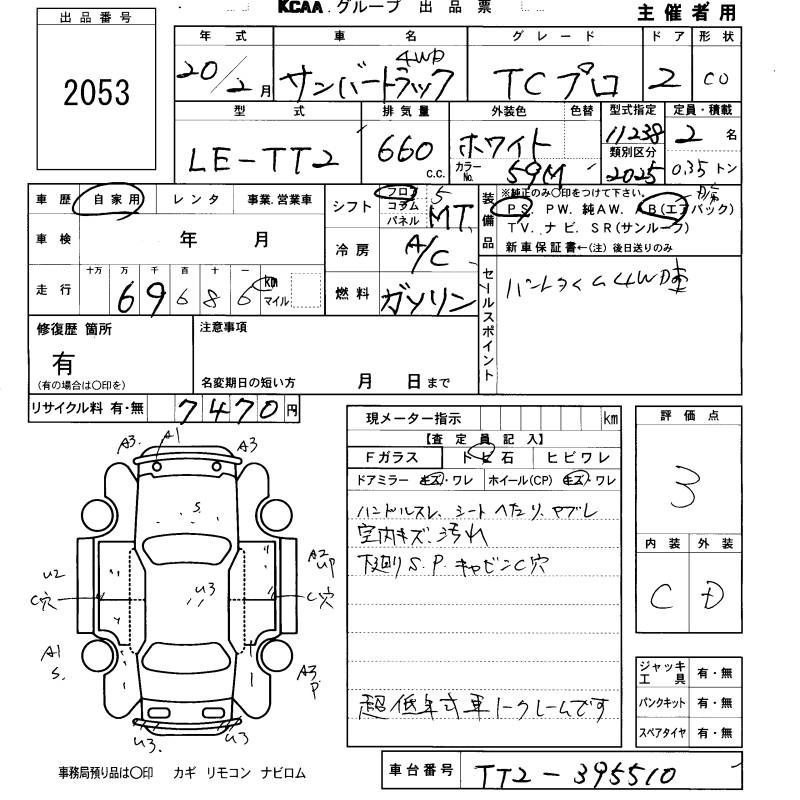 KCAA.グループ 出品票
主催者用
出品番号
2053
年式 車名 グレード ドア 形状
20/2月 サンバートラック 4WD TCプロ 2 CO
型式 排気量 外装色 色替 型式指定 定員・積載
LE-TT2 660 c.c. ホワイト 11238 2名
カラーNo. 59M 類別区分 2025 0.35トン
車歴 自家用 レンタ 事業.営業車
車検 年 月
走行 十万 万 千 百 十 一 km マイル
69686
シフト フロア コラム パネル 5 MT
冷房 A/C
燃料 ガソリン
装備品 ※純正のみ〇印をつけて下さい。
PS. PW. 純AW. AB(エアバック)
TV. ナビ. SR(サンルーフ)
新車保証書←(注) 後日送りのみ
セールスポイント
パートタイム4WD車
修復歴 箇所
有
(有の場合は〇印を)
注意事項
名変期日の短い方 月 日まで
リサイクル料 有・無 7470円
現メーター指示 km
【査定員記入】
Fガラス トビ石 ヒビワレ
ドアミラー キズ・ワレ ホイール(CP) キズ・ワレ
ハンドルスレ、シートヘたり、ヤブレ
室内キズ、汚れ
下廻りS.P.キャビンC穴
超低年式車ノークレームです
評価点
3
内装 外装
C D
ジャッキ 工具 有・無
パンクキット 有・無
スペアタイヤ 有・無
A3. A1 A3
S.
U2 U3 A2 UP
C穴 C穴
A1 S. A3 P
U3. U3
事務局預り品は〇印 カギ リモコン ナビロム
車台番号 TT2-395510